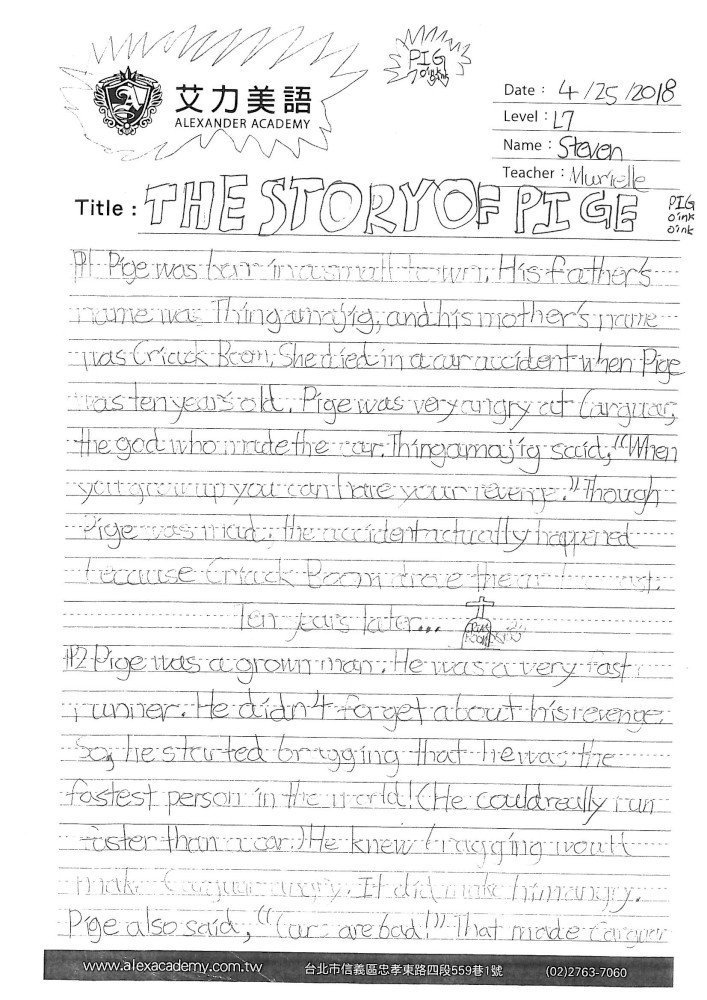 艾力美語
ALEXANDER ACADEMY
PIG
oink
oink
Date : 4/25/2018
Level : L7
Name : Steven
Teacher : Murielle
Title : THE STORY OF PIGE
PIG
oink
oink
P1 Pige was born in a small town. His father's
name was Thingamajig, and his mother's name
was Criack Boom. She died in a car accident when Pige
was ten years old. Pige was very angry at Carguar,
the god who made the car. Thingamajig said, "When
you grow up you can have your revenge." Though
Pige was mad, the accident actually happened
because Criack Boom drove the
Ten years later...
P2 Pige was a grown man. He was a very fast
runner. He didn't forget about his revenge.
So, he started bragging that he was the
fastest person in the world! (He could really run
faster than a car.) He knew bragging would
make Carguar angry. It did make him angry.
Pige also said, "Cars are bad!" That made Carguar
www.alexacademy.com.tw 台北市信義區忠孝東路四段559巷1號 (02)2763-7060